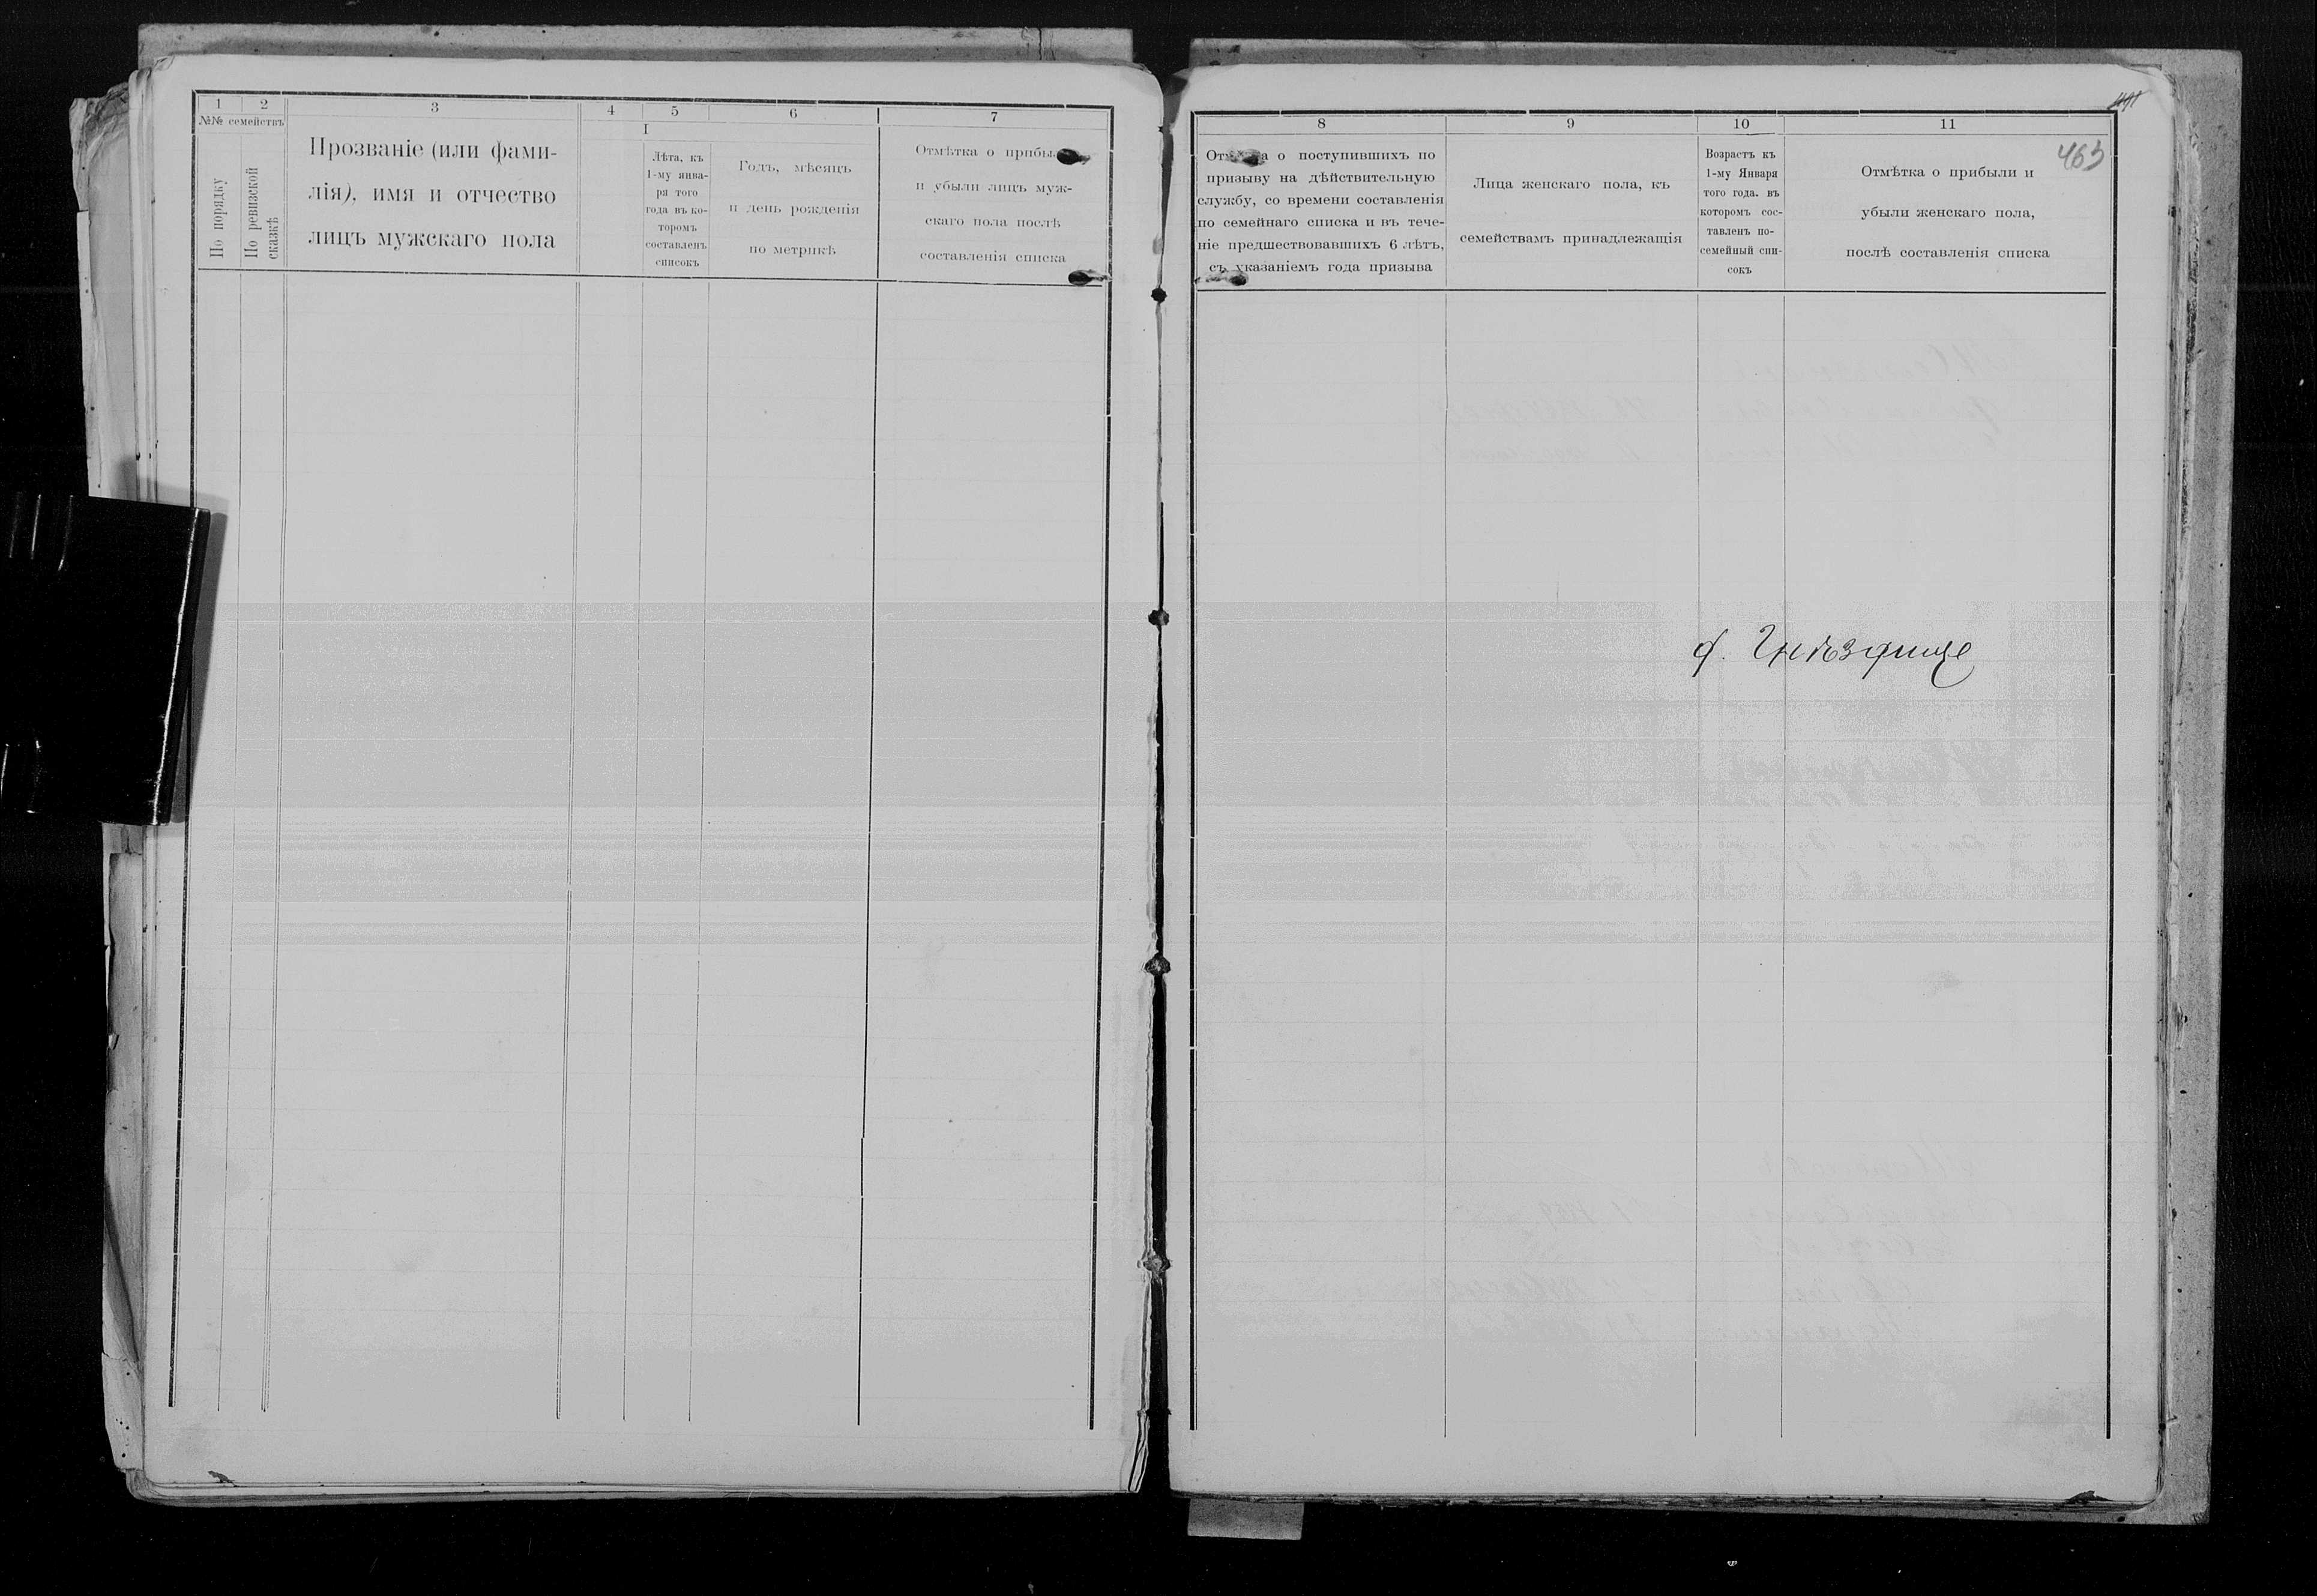 1 2 3 4 5 6 7
№№ семействъ
По порядку
По ревизской
сказкѣ
Прозваніе (или фами-
лія), имя и отчество
лицъ мужскаго пола
I
Лѣта, къ
1-му янва-
ря того
года въ ко-
торомъ
составленъ
списокъ
Годъ, мѣсяцъ
и день рожденія
по метрикѣ
Отмѣтка о прибы
и убыли лицъ муж-
скаго пола послѣ
составленія списка
8 9 10 11
463
Отмѣтка о поступившихъ по
призыву на дѣйствительную
службу, со времени составленія
по семейнаго списка и въ тече-
ніе предшествовавшихъ 6 лѣтъ,
съ указаніемъ года призыва
Лица женскаго пола, къ
семействамъ принадлежащія
Возрастъ къ
1-му Января
того года. въ
которомъ сос-
тавленъ по-
семейный спи-
сокъ
Отмѣтка о прибыли и
убыли женскаго пола,
послѣ составленія списка
д. Гнѣздище